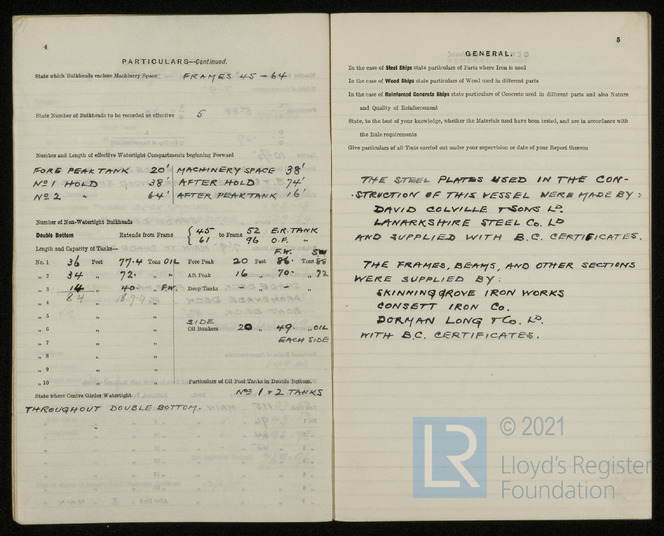 4
PARTICULARS—Continued.
State which Bulkheads enclose Machinery Space FRAMES 45 - 64
State Number of Bulkheads to be recorded as effective 5
Number and Length of effective Watertight Compartments beginning Forward
FORE PEAK TANK 20' MACHINERY SPACE 38'
No 1 HOLD 38' AFTER HOLD 74'
No 2 " 64' AFTER PEAK TANK 16'
Number of Non-Watertight Bulkheads
Double Bottom Extends from Frame { 45 to Frame 52 E.R. TANK
61 " 96 O.F. "
Length and Capacity of Tanks— F.W. SW
No. 1 36 Feet 77.4 Tons OIL Fore Peak 20 Feet 86. Tons 88
" 2 34 " 72. " Aft Peak 16 " 70. " 72
" 3 14 " 40. " F.W. Deep Tanks - " - "
" 4 84
" 5 SIDE
" 6 Oil Bunkers 20 " 49. " OIL
" 7 " EACH SIDE
" 8 "
" 9 "
" 10 " Particulars of Oil Fuel Tanks in Double Bottom.
State where Centre Girder Watertight No 1 & 2 TANKS
THROUGHOUT DOUBLE BOTTOM.
5
GENERAL.
In the case of Steel Ships state particulars of Parts where Iron is used
In the case of Wood Ships state particulars of Wood used in different parts
In the case of Reinforced Concrete Ships state particulars of Concrete used in different parts and also Nature
and Quality of Reinforcement
State, to the best of your knowledge, whether the Materials used have been tested, and are in accordance with
the Rule requirements
Give particulars of all Tests carried out under your supervision or date of your Report thereon
THE STEEL PLATES USED IN THE CON-
-STRUCTION OF THIS VESSEL WERE MADE BY:
DAVID COLVILLE & SONS LD.
LANARKSHIRE STEEL Co. LD
AND SUPPLIED WITH B.C. CERTIFICATES.
THE FRAMES, BEAMS, AND OTHER SECTIONS
WERE SUPPLIED BY:
SKINNINGROVE IRON WORKS
CONSETT IRON Co.
DORMAN LONG & Co. LD.
WITH B.C. CERTIFICATES.
LR © 2021
Lloyd's Register
Foundation